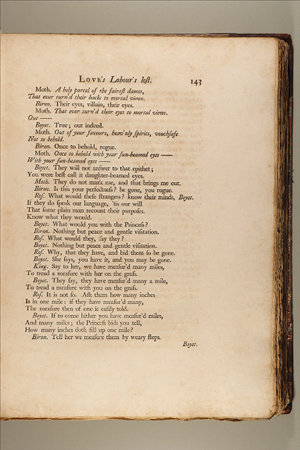 LOVE's Labour's lost. 143
Moth. A holy parcel of the fairest dames,
That ever turn'd their backs to mortal views.
Biron. Their eyes, villain, their eyes.
Moth. That ever turn'd their eyes to mortal views.
Out ——
Boyet. True; out indeed.
Moth. Out of your favours, heav'nly spirits, vouchsafe
Not to behold.
Biron. Once to behold, rogue.
Moth. Once to behold with your sun-beamed eyes ——
With your sun-beamed eyes ——
Boyet. They will not answer to that epithet;
You were best call it daughter-beamed eyes.
Moth. They do not mark me, and that brings me out.
Biron. Is this your perfectness? be gone, you rogue.
Ros. What would these strangers? know their minds, Boyet.
If they do speak our language, 'tis our will
That some plain man recount their purposes.
Know what they would.
Boyet. What would you with the Princess?
Biron. Nothing but peace and gentle visitation.
Ros. What would they, say they?
Boyet. Nothing but peace and gentle visitation.
Ros. Why, that they have, and bid them so be gone.
Boyet. She says, you have it, and you may be gone.
King. Say to her, we have measur'd many miles,
To tread a measure with her on the grass.
Boyet. They say, they have measur'd many a mile,
To tread a measure with you on the grass.
Ros. It is not so. Ask them how many inches
Is in one mile: if they have measur'd many,
The measure then of one is easily told.
Boyet. If to come hither you have measur'd miles,
And many miles; the Princess bids you tell,
How many inches doth fill up one mile?
Biron. Tell her we measure them by weary steps.
Boyet.